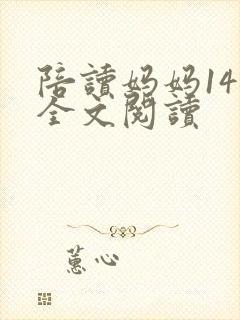 陪讀妈妈14
全文閱讀
蕙心